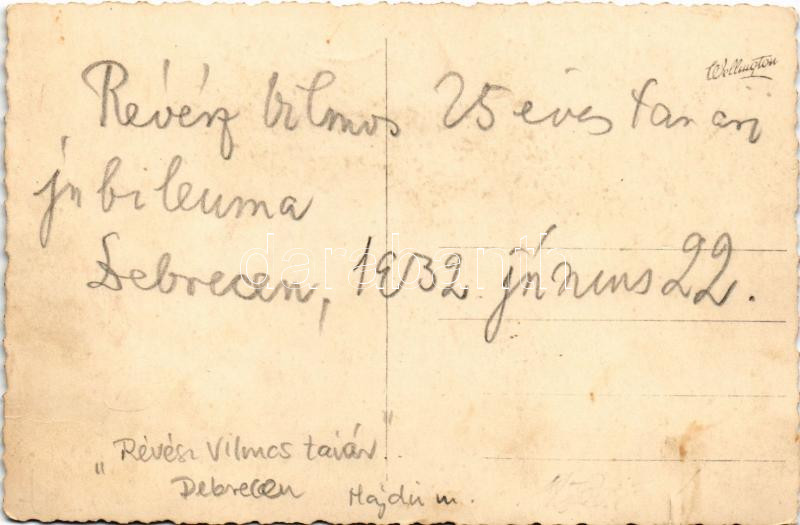 Wellington
Révész Vilmos 25 éves tanári
jubileuma
Debrecen, 1932 június 22.
darabanth
„Révész Vilmos tanár"
Debrecen Hajdú m.